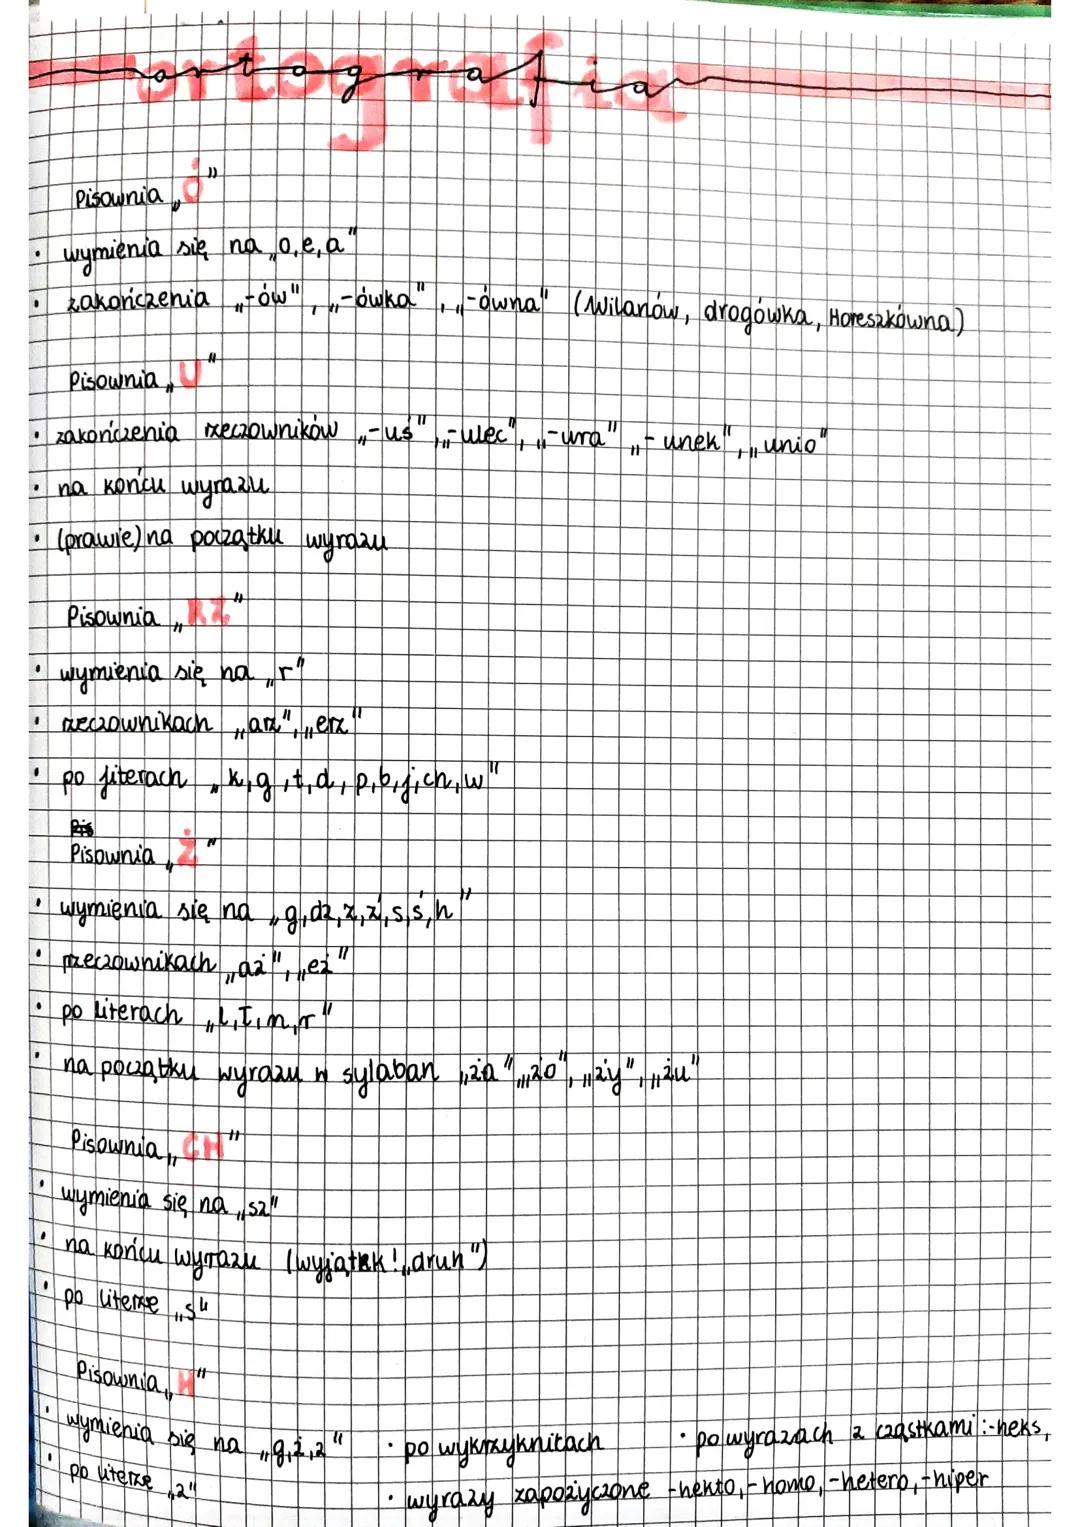 ortografia
Pisownia „Ó"
• wymienia się na „o,e,a"
• zakończenia „-ów", „-ówka", „-ówna" (Wilanów, drogówka, Horeszkówna)
Pisownia „U"
• zakończenia rzeczowników „-uś", „-ulec", „-ura" „-unek", „unio"
• na końcu wyrazu
• (prawie) na początku wyrazu
Pisownia „RZ"
• wymienia się na „r"
• rzeczownikach „arz", „erz"
• po literach „k,g,t,d,p,b,j,ch,w"
Pis
Pisownia „Ż"
• wymienia się na „g,dz,z,ź,s,ś,h"
• rzeczownikach „aż", „eż"
• po literach „l,ł,m,r"
• na początku wyrazu w sylaban „ża" „żo", „ży", „żu"
Pisownia „CH"
• wymienia się na „sz"
• na końcu wyrazu (wyjątek! „druh")
• po literze „s"
Pisownia „H"
• wymienia się na „g,ż,z" • po wykrzyknikach • po wyrazach z cząstkami :-heks,
• po literze „z" • wyrazy zapożyczone -hekto, -homo, -hetero, -hiper